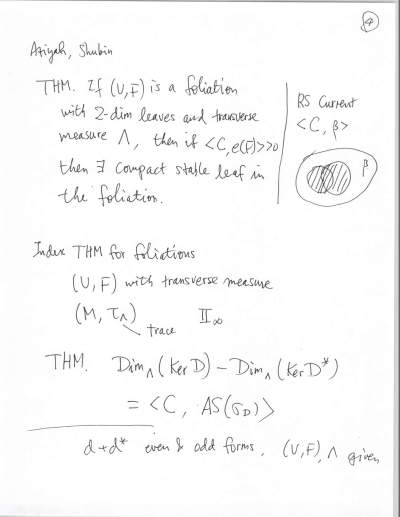 4
Atiyah, Shubin
THM. If (V,F) is a foliation
with 2-dim leaves and transverse
measure Λ, then if <C, e(F)> >0
then ∃ compact stable leaf in
the foliation.
RS Current
<C, β>
β
Index THM for foliations
(V,F) with transverse measure
(M, τ_Λ) II_∞
trace
THM. Dim_Λ (Ker D) - Dim_Λ (Ker D*)
= <C, AS(σ_D)>
d+d* even & odd forms. (V,F), Λ given